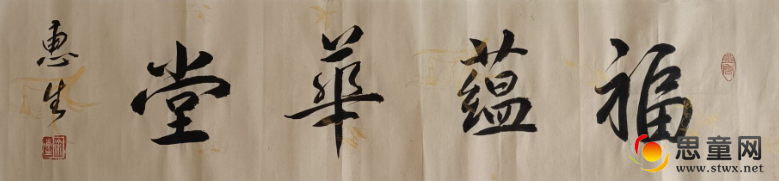 福蘊華堂
惠生
思童网
www.stwx.net